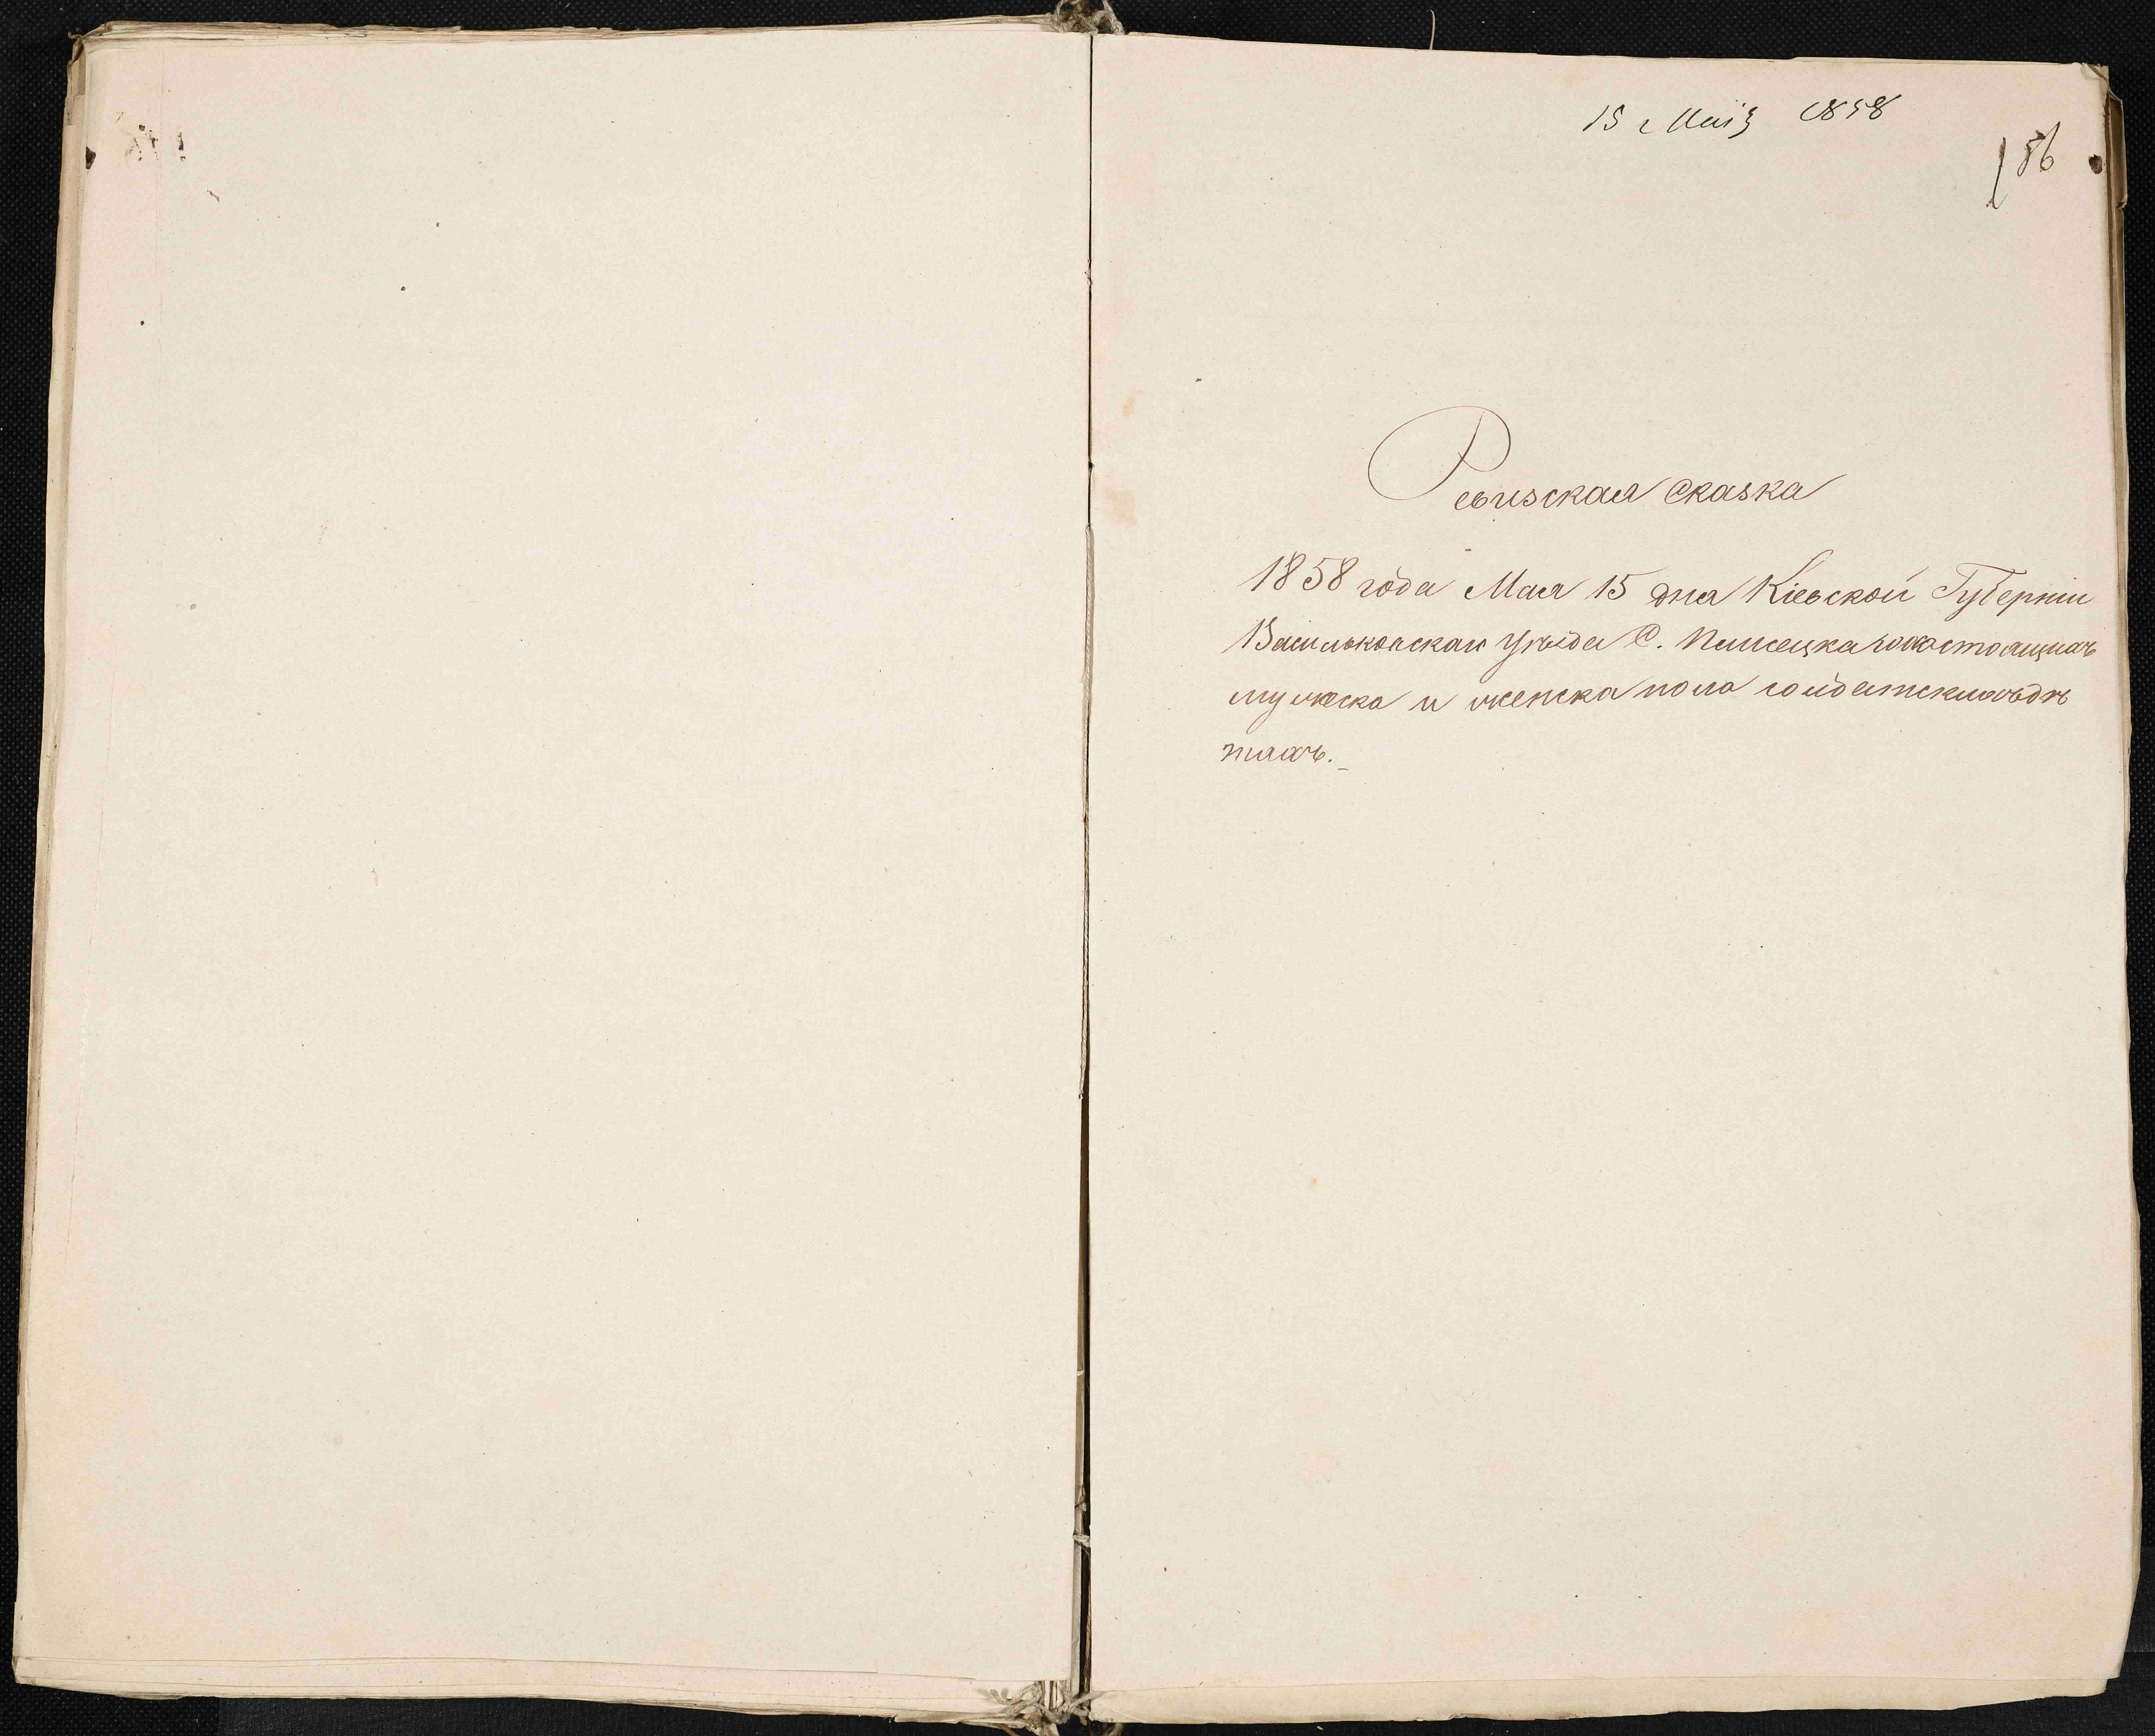 15 Маія 1858
186
Ревизская Сказка
1858 года Мая 15 дня Кіевской Губерніи
Васильковскаго Уѣзда С. о состоящихъ
мужеска и женска пола солдатскихъ дѣ
тяхъ.